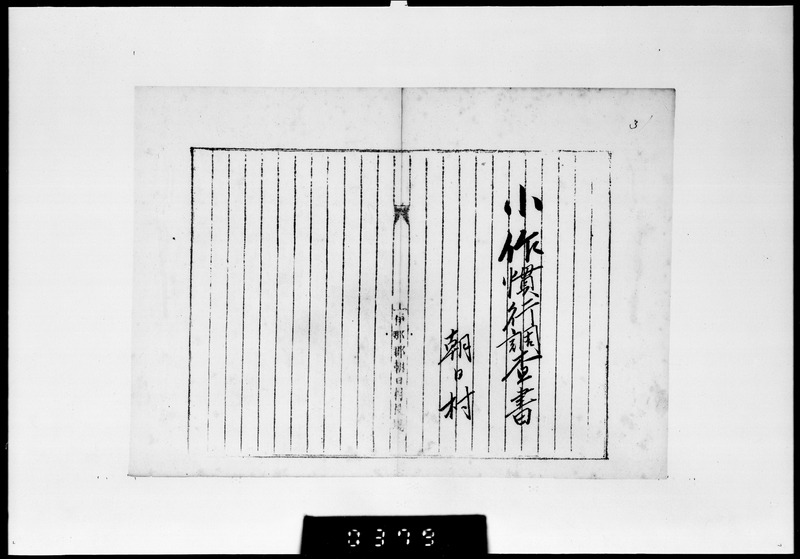 3
小作慣行調査書
朝日村
上伊那郡朝日村役場
0379